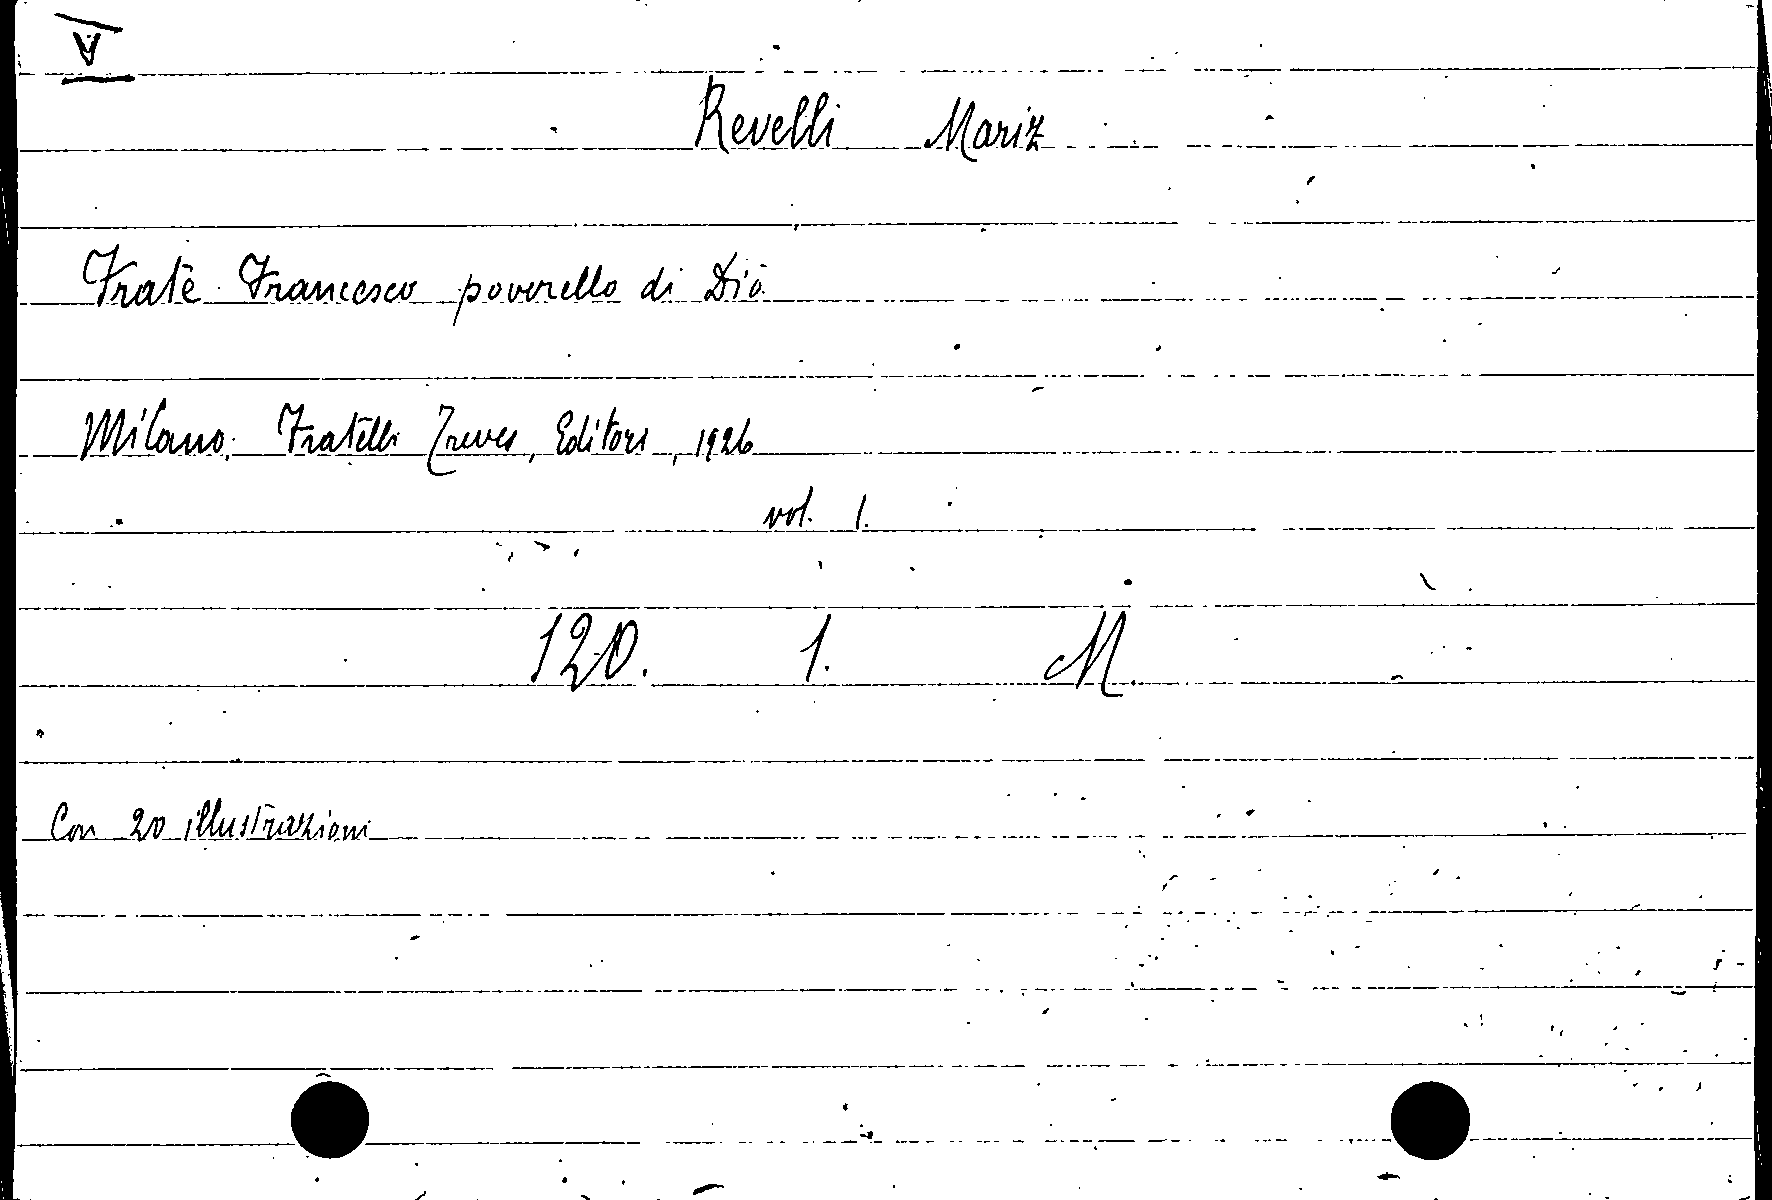 V
Revelli Mariz
Frate Francesco poverello di Dio
Milano. Fratelli Treves, Editori, 1926
vol. 1.
120. 1. M.
Con 20 illustrazioni